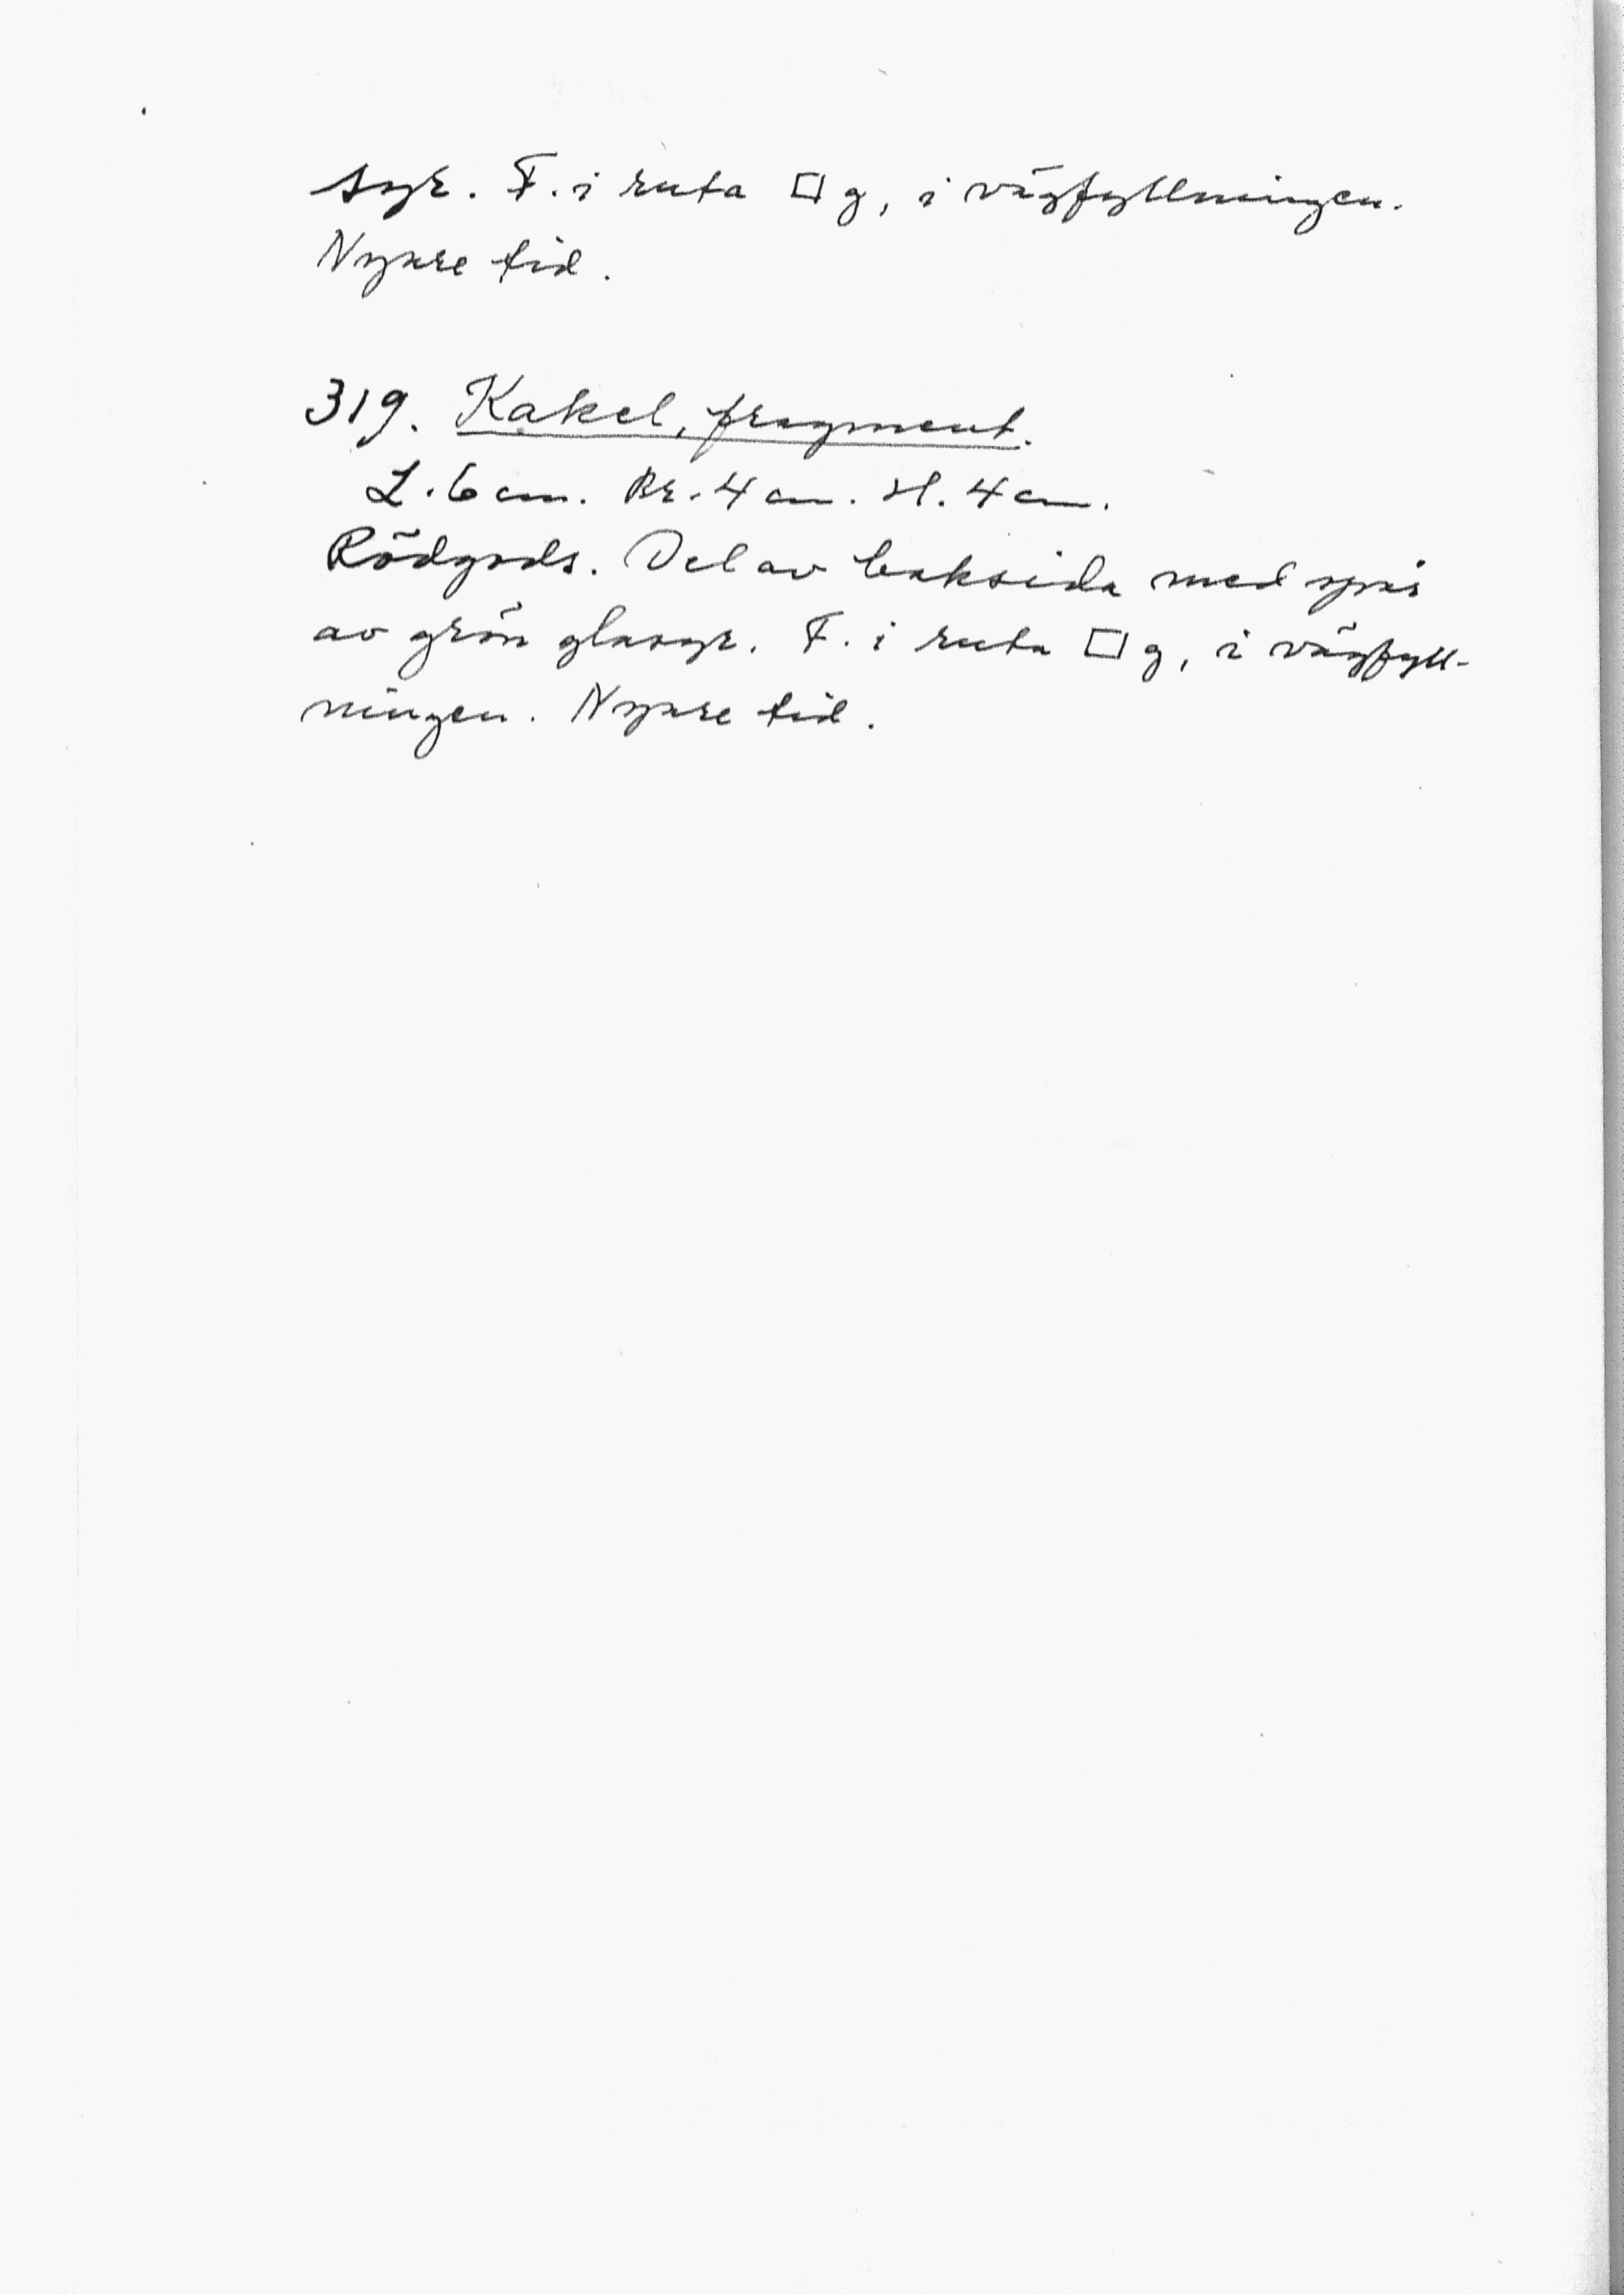 syr. F. i ruta □ g, i vägfyllningen.
Nyare tid.
319. Kakel, fragment.
L. 6 cm. Br. 4 cm. H. 4 cm.
Rödgods. Del av baksida med spår
av grön glasyr. F. i ruta □ g, i vägfyll-
ningen. Nyare tid.